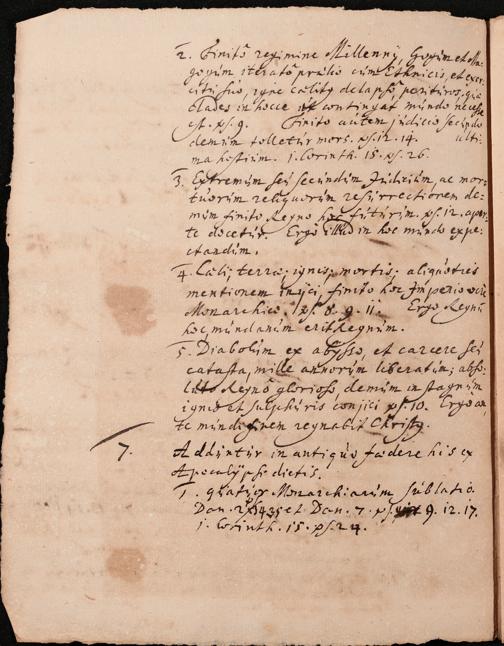 2. Finitô regimine Millennij, Gogum et Ma-
gogum iteratô prælio cùm Ethnicis, et exer-
citu suo, igne cælitus delapsô perituros: quæ
clades in hocce ut contingat mundo necesse
est. ps. 9. Finito autem judicio secundo
demum tolletur mors. ps. 12. 14. ulti-
ma hostium. 1. Corinth. 15. ps. 26.
3. Extremum seu secundum Judicium ac mor-
tuorum reliquorum resurrectionem de-
mum finito Regno hoc futurum. ps. 12. aper-
te docetur. Ergo illud in hoc mundo expe-
ctandum.
4. Cæli, terræ, ignis, mortis, aliquoties
mentionem injici, finito hoc Imperio
Monarchico. ps. 8. 9. 11. Ergo Regnum
hoc mundanum erit Regnum.
5. Diabolum ex abysso, et carcere seu
catasta, mille annorum liberatum; abso-
luto Regno glorioso demum in stagnum
ignis et sulphuris conjici ps. 10. Ergo an-
te mundi finem regnabit Christus.
7. Addûntur in antiquo fœdere his ex
Apocalypsi dictis.
1. quatuor Monarchiarum sublatio.
Dan. 2. et Dan. 7. 9. 12. 17.
1. Corinth. 15. ps. 24.